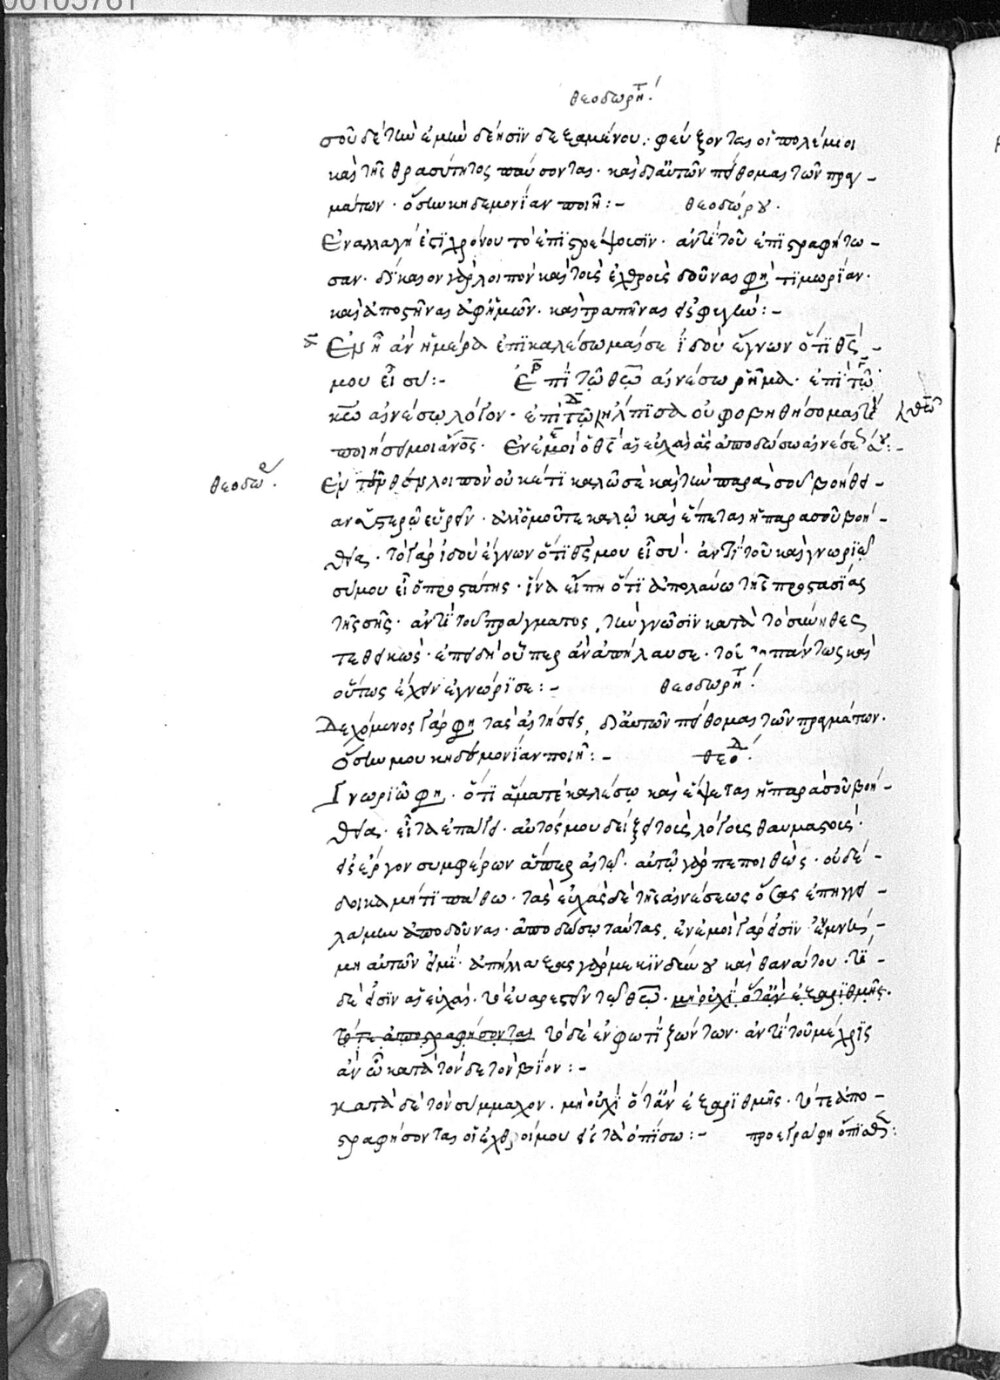 00105761
θεοδωρήτ
σοῦ δὲ τὴν ἐμὴν δέησϊν δεξαμένου· φεύξονται οἱ πολέμιοι
καὶ τῆς θρασύτητος παύσονται· καὶ δι' αὐτῶν πείθομαι τῶν πραγ-
μάτων· ὅσην κηδεμονίαν ποιῇ:- θεοδώρου.
Ἐναλλαγὴ ἐστὶ χρόνου τὸ ἐπιστρέψουσϊν· ἀντὶ τοῦ ἐπιστραφήτω-
σαν· δίκαιον γὰρ λοιπὸν καὶ τοὺς ἐχθροὺς δοῦναι φη, τιμωρίαν·
καὶ ἀποστῆναι ἀφ' ἡμῶν· καὶ τραπῆναι εἰς φυγήν:-
Ἐν ᾗ ἂν ἡμέρα ἐπικαλέσωμαί σε ἰδοὺ ἔγνων ὅτι θς
μου εἶ συ:- Ἐπὶ τῷ θεῷ αἰνέσω ῥῆμα· ἐπὶ τῷ
κω αἰνέσω λόγον· ἐπὶ τῷ θῶ ἤλπισα οὐ φοβηθήσομαι τί
ποιήσει μοι ἄνος· Ἐν ἐμοὶ ὁ θς αἱ εὐχαὶ ἃς ἀποδώσω αἰνέσεώς σου:-
θεοδώ
Ἐν τούτῳ θέμενος λοιπὸν οὐκέτι καλῶ σε καὶ τὴν παρὰ σοῦ βοήθει-
αν ὕστερον εὗρον· ἀλλ' ὁμοῦ τε καλῶ καὶ ἕπεται ἡ παρὰ σοῦ βοή-
θεια· τὸ γὰρ ἰδοὺ ἔγνων ὅτι θς μου εἶ σύ· ἀντὶ τοῦ καὶ γνωρίζω
σύ μου εἶ ὁ προστάτης· ἵνα εἴπῃ ὅτι ἀπολαύω τῆς προστασίας
τῆς σῆς· ἀντὶ τοῦ πράγματος, τὴν γνῶσϊν κατὰ τὸ σύνηθες
τεθεικώς· ἐπειδὴ οὗπερ ἂν ἀπήλαυσε· τοῦ πάντως καὶ
οὕτως ἔχειν ἐγνώρισε:- θεοδωρήτ
Δεχόμενος γάρ φη τὰς αἰτήσεις, δι' αὐτῶν πείθομαι τῶν πραγμάτων·
ὅσην μου κηδεμονίαν ποιῇ:- θεοδ
Γνωρίζω φη· ὅτι ἅμα τε καλέσω καὶ ἕψεται ἡ παρὰ σοῦ βοή-
θεια· εἶτα ἐπάγει· αὐτός μου δείξει τοὺς λόγους θαυμαστούς·
εἰς ἔργον συμφέρων ἅπερ αἰτῶ· αὐτῷ γὰρ πεποιθὼς· οὐ δέ-
δοικα μή τι πάθω· τὰς εὐχὰς δὲ τῆς αἰνέσεως ὅσας ἐπηγγει-
λάμην ἀποδοῦναι· ἀποδώσω ταύτας, ἐν ἐμοὶ γάρ εἰσϊν
μη αὐτῶν εἰμί· ἀπήλλαξας γάρ με κινδύνου καὶ θανάτου· τί
δέ εἰσϊν αἱ εὐχαί· τὸ εὐαρεστεῖν τῷ θῶ· μὴ οὐχὶ ὅταν ἐξαριθμῇς·
τότε ἀποστραφήσονται τὸ δὲ ἐν φωτὶ ζώντων· ἀντὶ τοῦ μέχρις
ἂν ὦ κατὰ τόνδε τὸν βίον:-
κατὰ δὲ τὸν σύμμαχον· μὴ οὐχὶ ὅταν ἐξαριθμῇς· τότε ἀπο-
στραφήσονται οἱ ἐχθροί μου εἰς τὰ ὀπίσω:- προεγράφη ὄπισθεν: